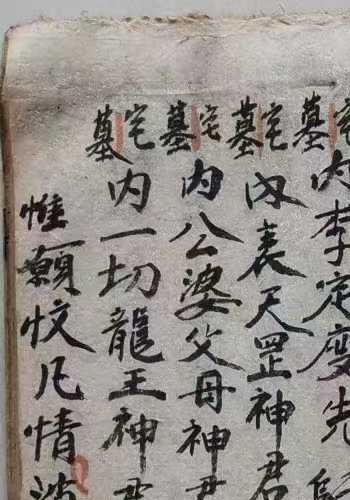 宅墓内李定度先
宅墓内衰天罡神君
宅墓内公婆父母神君
宅墓内一切龍王神君
惟願忟凡情